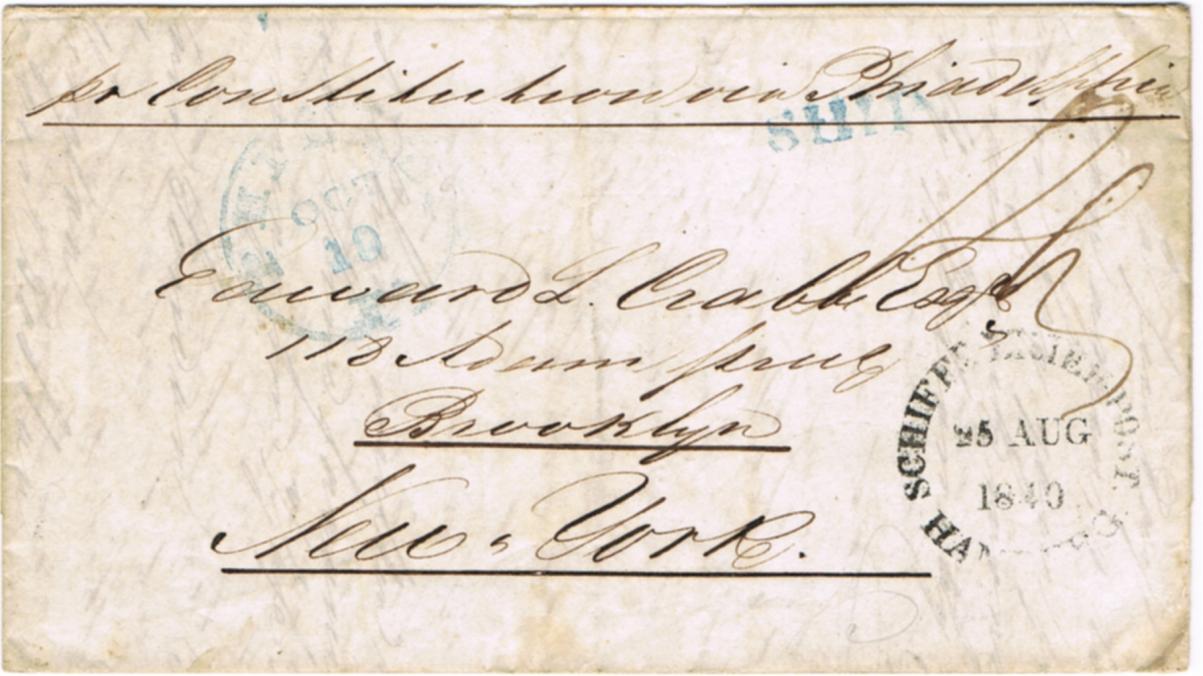 pr Constitution via Philadelphia
SHIP
OCT
10
Edward L. Crabbe Esqr
118 Adam
Brooklyn
New-York.
SCHIFFS BRIEF POST
25 AUG
1840
HAMBURG